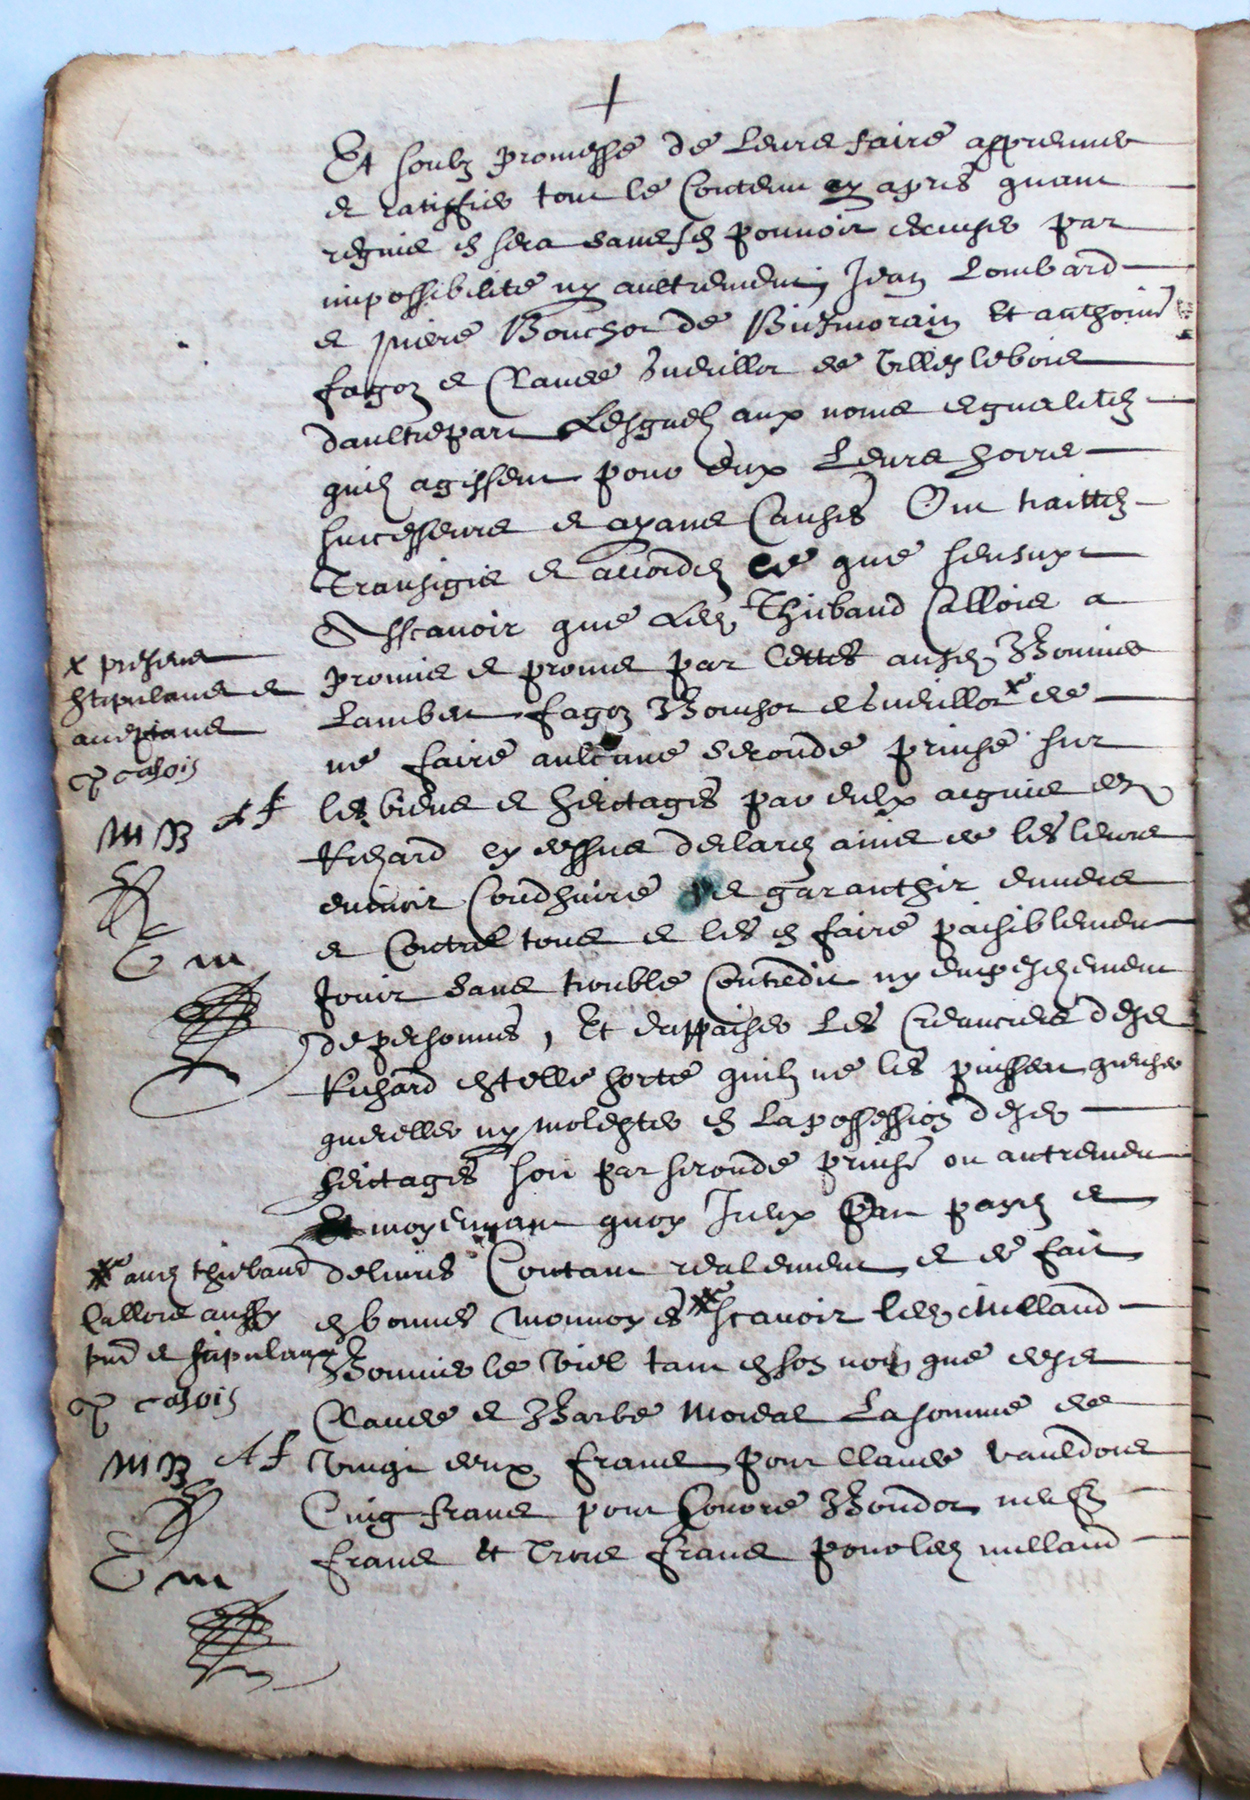 Et soubz promesse de leurs faire appreuver
et ratiffier tout le contenu cy apres quant
requis en sera sans sen pouvoir excuser par
impossibilite ny aultrement Jean Lombard
et piere Bouchot de Et anthoine
fagot et Claude de Villey lebois
daultrepart Lesquelz aux noms equalitez
quilz agissent pour eux Leurs hoirs
successeurs et ayans causes Ont traittez
transigis et accordez ce que sensuyt
Asscavoir que Ledt Thiebaud Callois a
promis et promet par cettes ausdz Bonnier
Lambert fagot Bouchot et x de
ne faire aulcune seconde prinse sur
les biens et heritages par eulx acquis dudt
Richard cy dessus declarez ains de les leurs
conduire et garanthir envers
et contre tous et les en faire paisiblement
Jouir sans trouble contredit ny empeschement
de personnes, Et dappaiser Les creanciers desd
Richard en telle sorte quilz ne les puissent
quereller ny molester en la possession desd
heritages soit par seconde prinse ou autrement
Et moyennant quoy Iceux ont payez et
delivres contant realement et de fait
en bonnes monnoyes scavoir ledt Milland
Bonnier le viel tant en son nom que desd
Claude et Barbe La somme de
vingt deux frans pour Claude
Cinq frans pour Bondot neuf
frans et trois frans pour ledt milland
x presens
stipulans et
acceptans
MB AF
m
audt thiebaud
Callois aussy
pnt et stipulant
MB AF
m